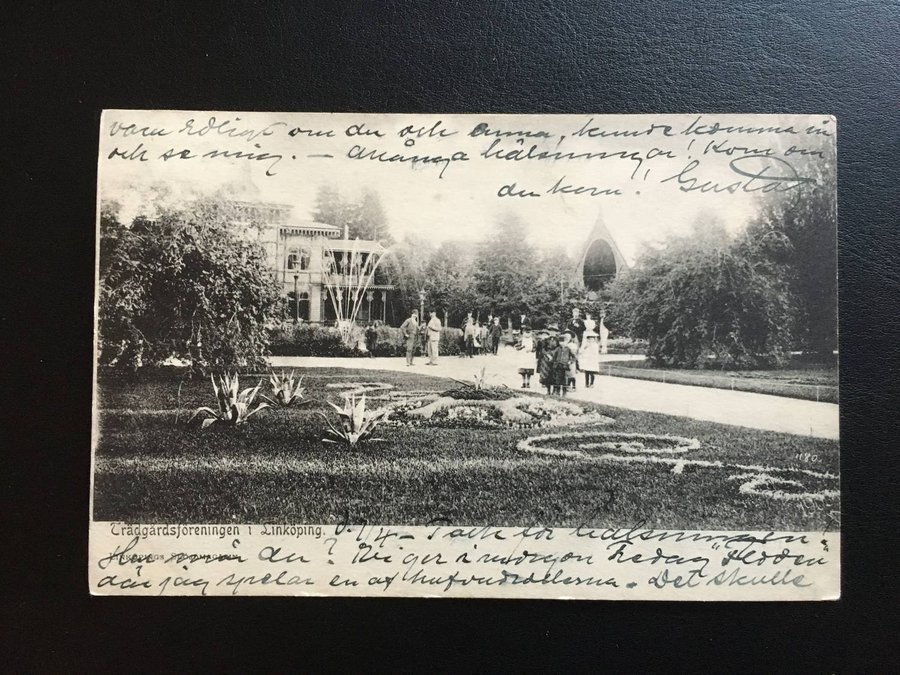 vara roligt om du och Anna, kunde komma in
och se mig. – Många hälsningar! Kom om
du kan! Gustaf
1180.
Trädgårdsföreningen i Linköping.
1/4 – Tack för hälsningen.
LINKÖPINGS
Hur mår du? Vi ger i morgon fredag
där jag spelar en af hufvudrollerna. – Det skulle